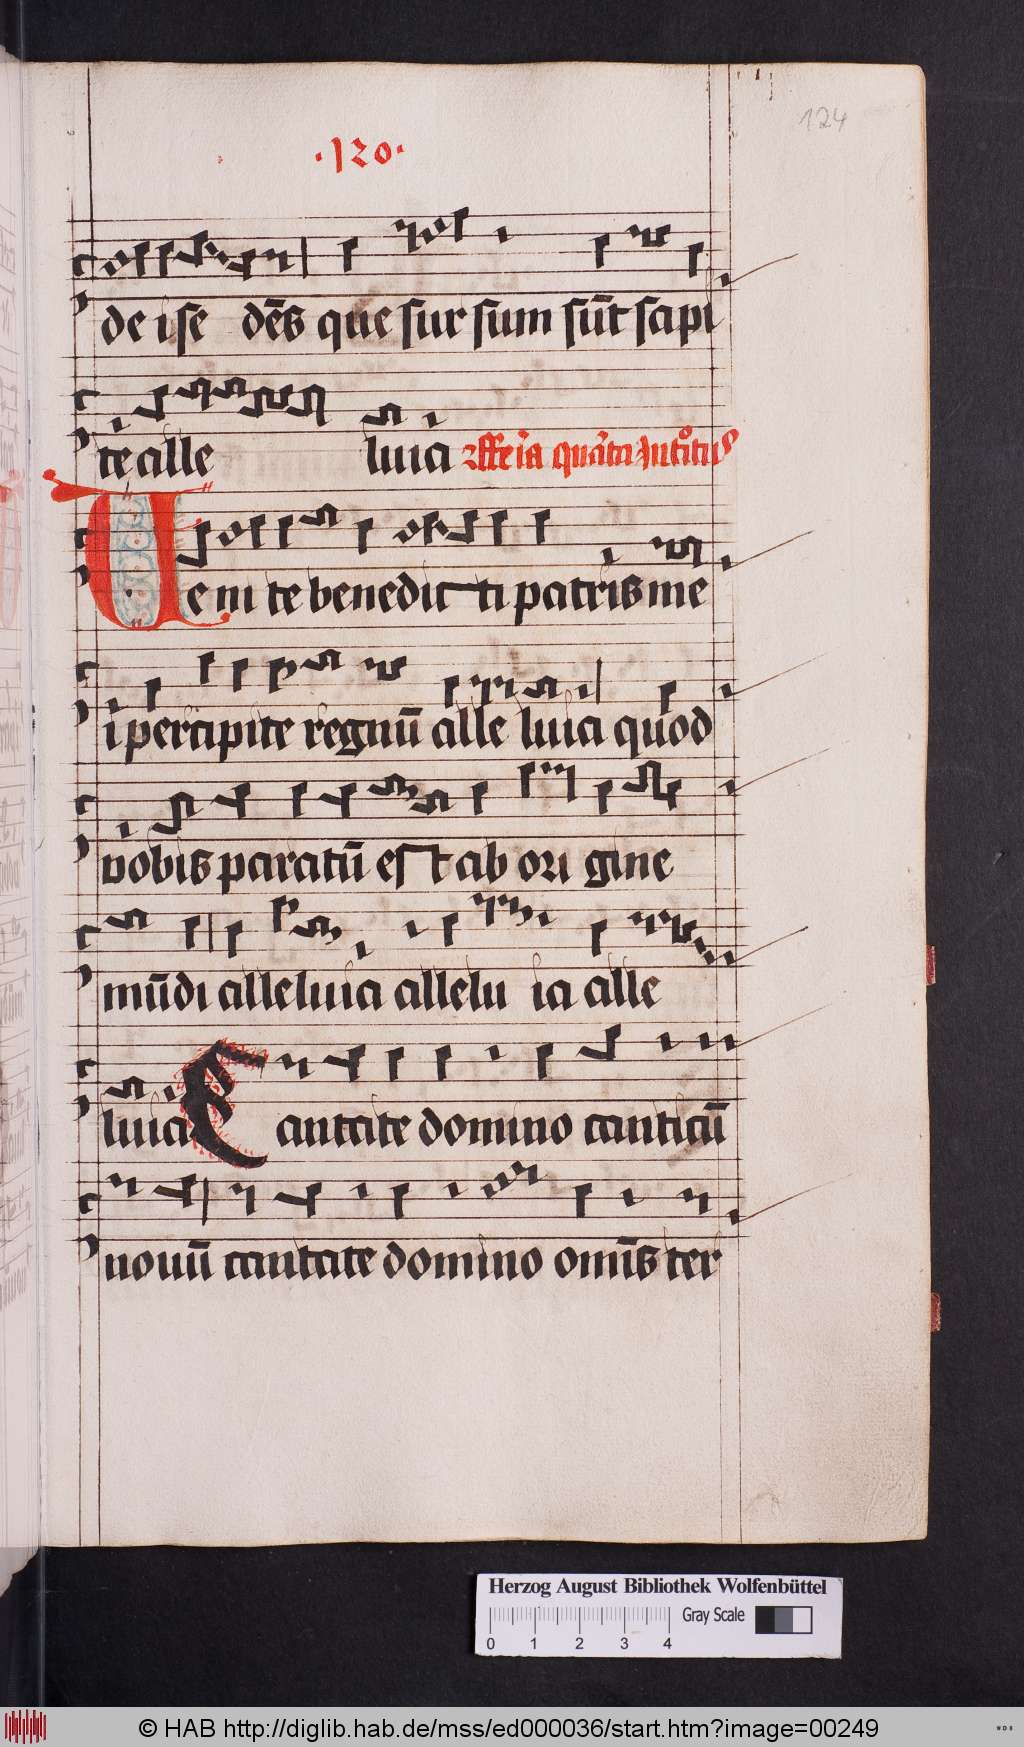 ·120·
124
de i se dēs que sur sum sūt sapi
te alle luia
Ueni te benedic ti patris me
i percipite regnū alle luia quod
vobis paratū est ab ori gine
mūdi alleluia allelu ia alle
luia Cantate domino canticū
nouū cantate domino omīs ter
Herzog August Bibliothek Wolfenbüttel
Gray Scale
0 1 2 3 4
© HAB http://diglib.hab.de/mss/ed000036/start.htm?image=00249